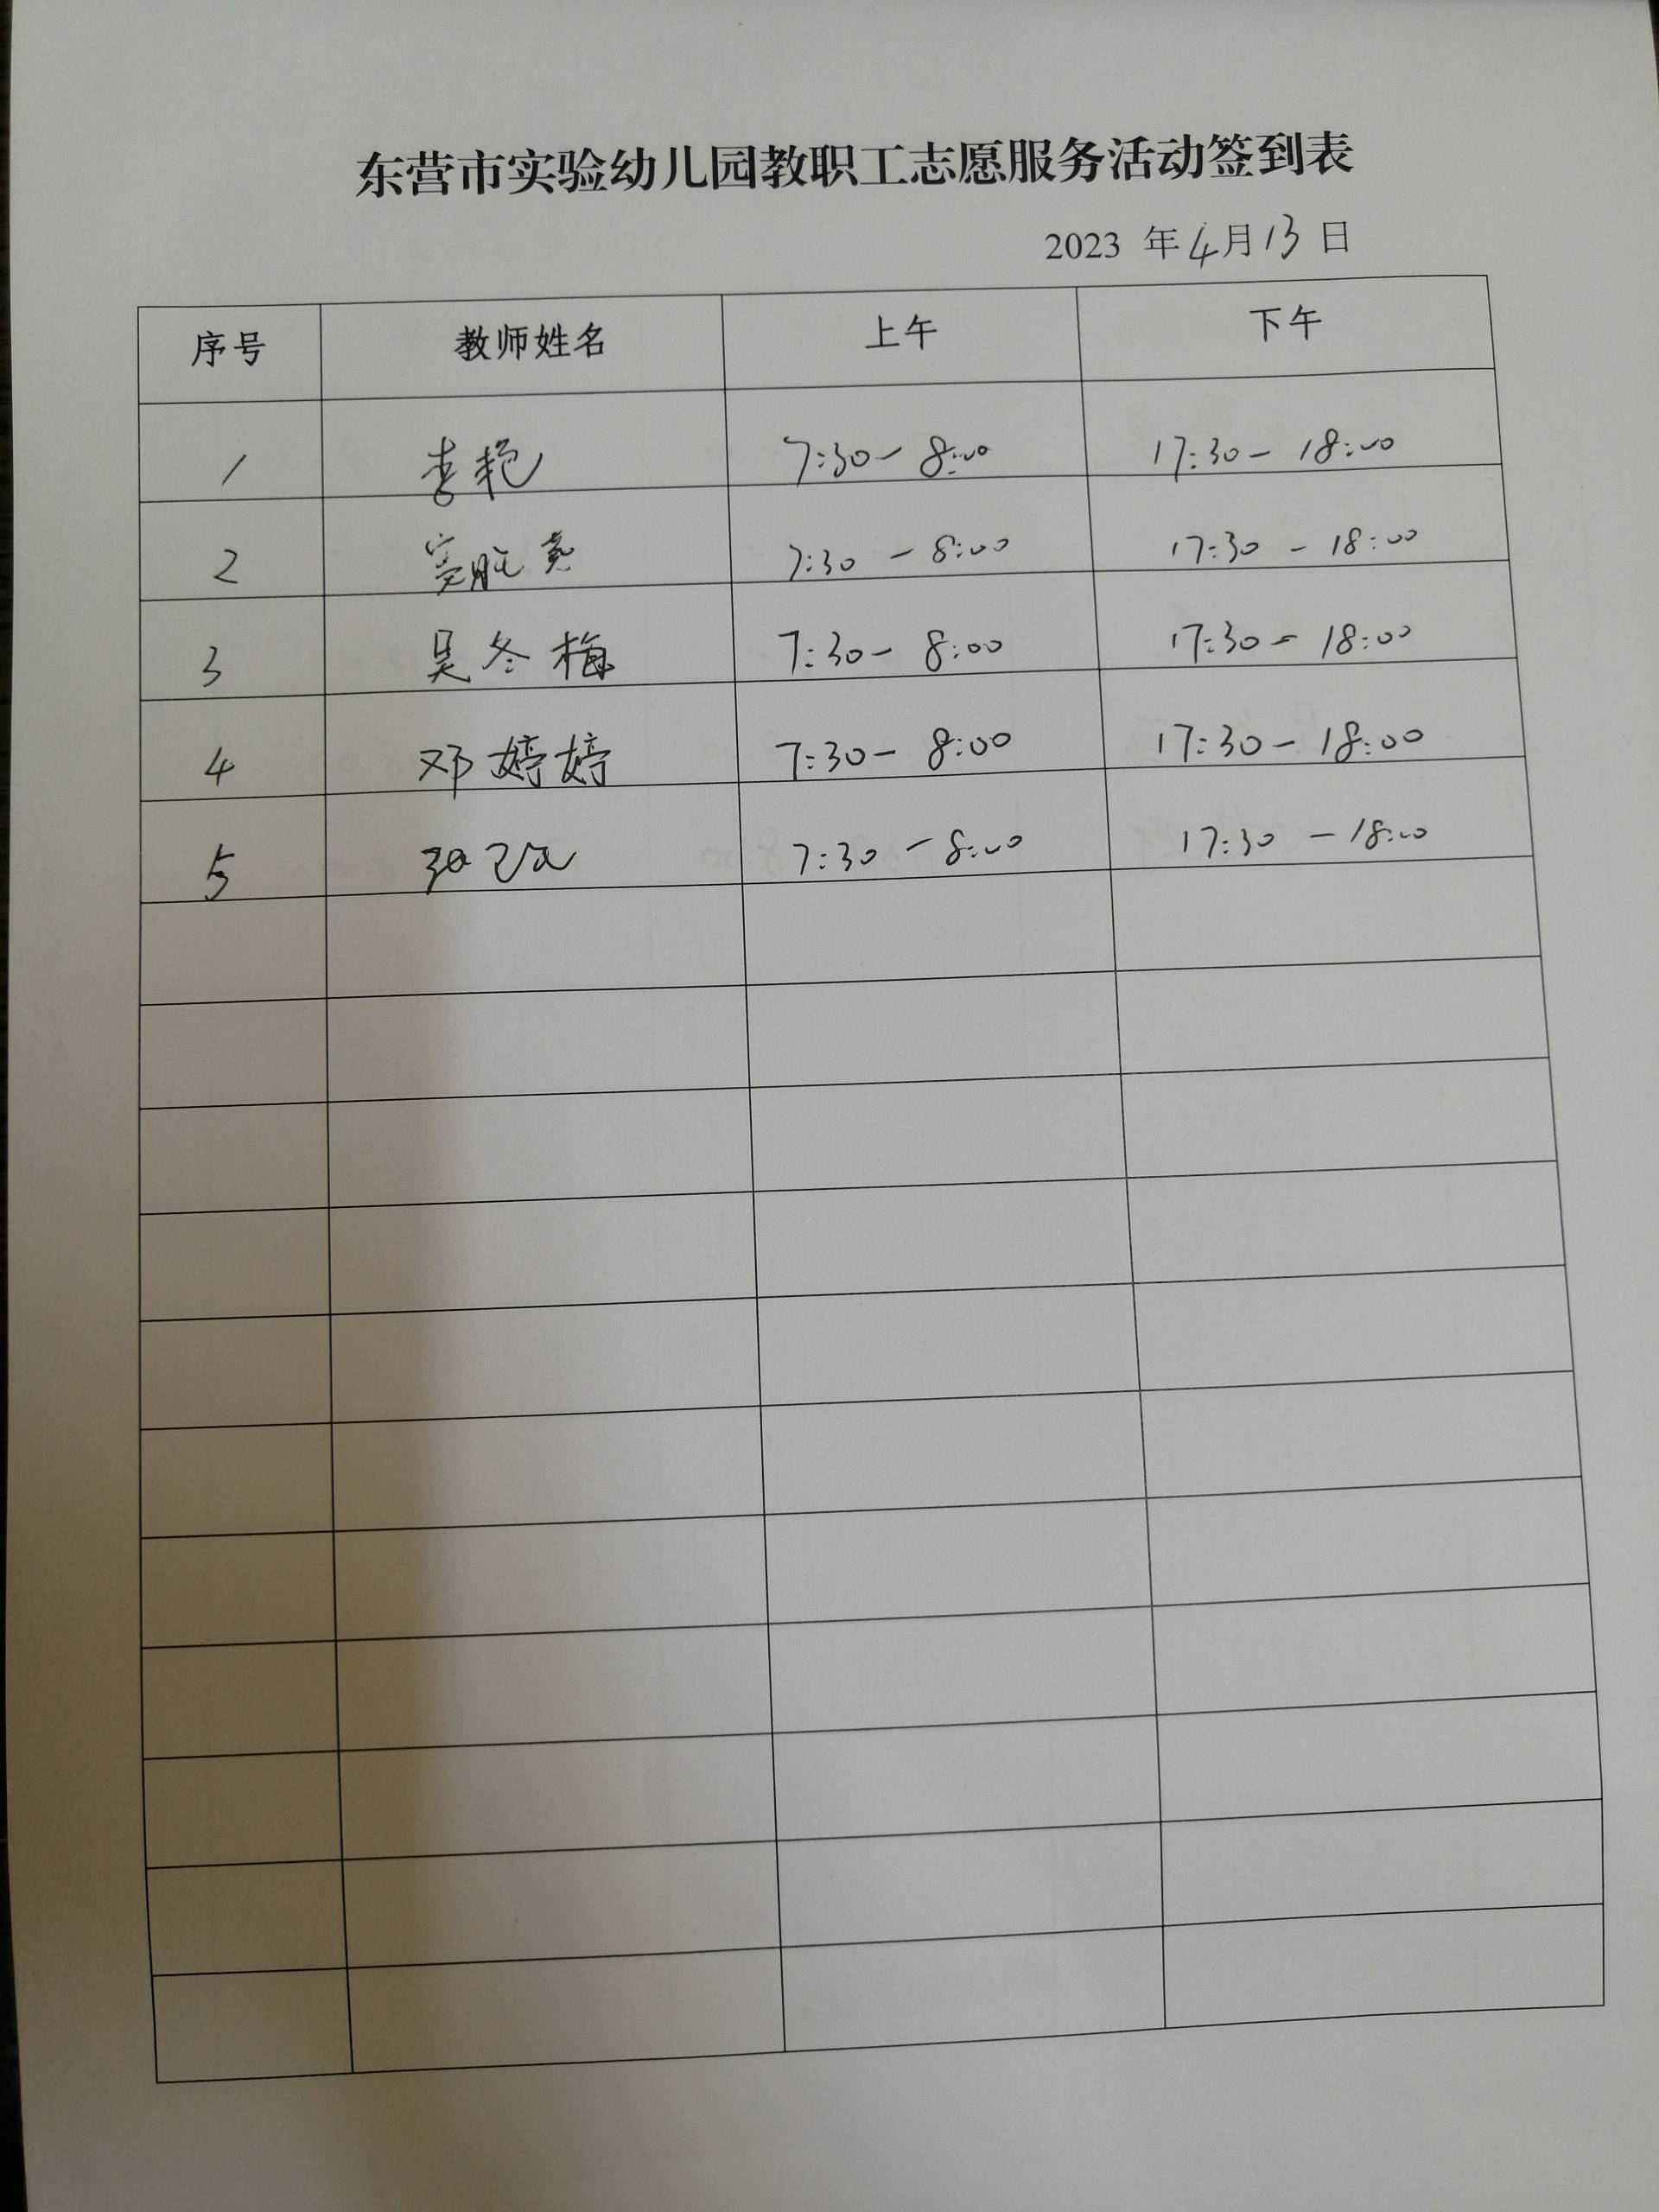 东营市实验幼儿园教职工志愿服务活动签到表
2023 年4月13日
序号 教师姓名 上午 下午
1 李艳 7:30-8:00 17:30-18:00
2 7:30-8:00 17:30-18:00
3 吴冬梅 7:30-8:00 17:30-18:00
4 邓婷婷 7:30-8:00 17:30-18:00
5 7:30-8:00 17:30-18:00